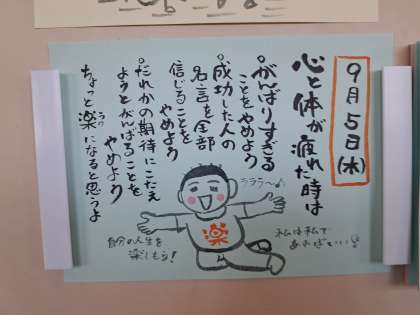 9月5日(木)
心と体が疲れた時は
。がんばりすぎる
ことをやめよう
。成功した人の
名言を全部
信じることを
やめよう
。だれかの期待にこたえ
ようとがんばることを
やめよう
ちょっと楽になると思うよ
ラク
ラララ〜♪
楽
私は私で
あればいい
自分の人生を
楽しもう!